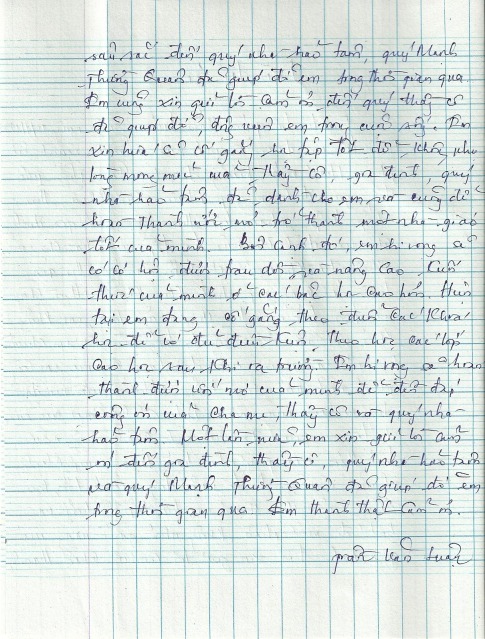 sâu sắc đến quý nhà hảo tâm, quý Mạnh
Thường Quân đã giúp đỡ em trong thời gian qua
Em cũng xin gửi lời cảm ơn đến quý thầy cô
đã giúp đỡ, động viên em trong cuộc sống. Em
xin hứa sẽ cố gắng học tập tốt để khỏi phụ
lòng mong mỏi của thầy cô, gia đình, quý
nhà hảo tâm đã dành cho em và cũng để
hoàn thành ước mơ trở thành một nhà giáo
tốt của mình. Bên cạnh đó, em hi vọng sẽ
có cơ hội được trau dồi và nâng cao kiến
thức của mình ở các bậc học cao hơn. Hiện
tại em đang cố gắng theo đuổi các khóa
học để có đủ điều kiện theo học các lớp
cao học sau khi ra trường. Em hi vọng sẽ hoàn
thành được ước mơ của mình để đền đáp
công ơn của cha mẹ, thầy cô và quý nhà
hảo tâm. Một lần nữa, em xin gửi lời cảm
ơn đến gia đình, thầy cô, quý nhà hảo tâm
và quý Mạnh Thường Quân đã giúp đỡ em
trong thời gian qua. Em thành thật cảm ơn.
Văn Luân